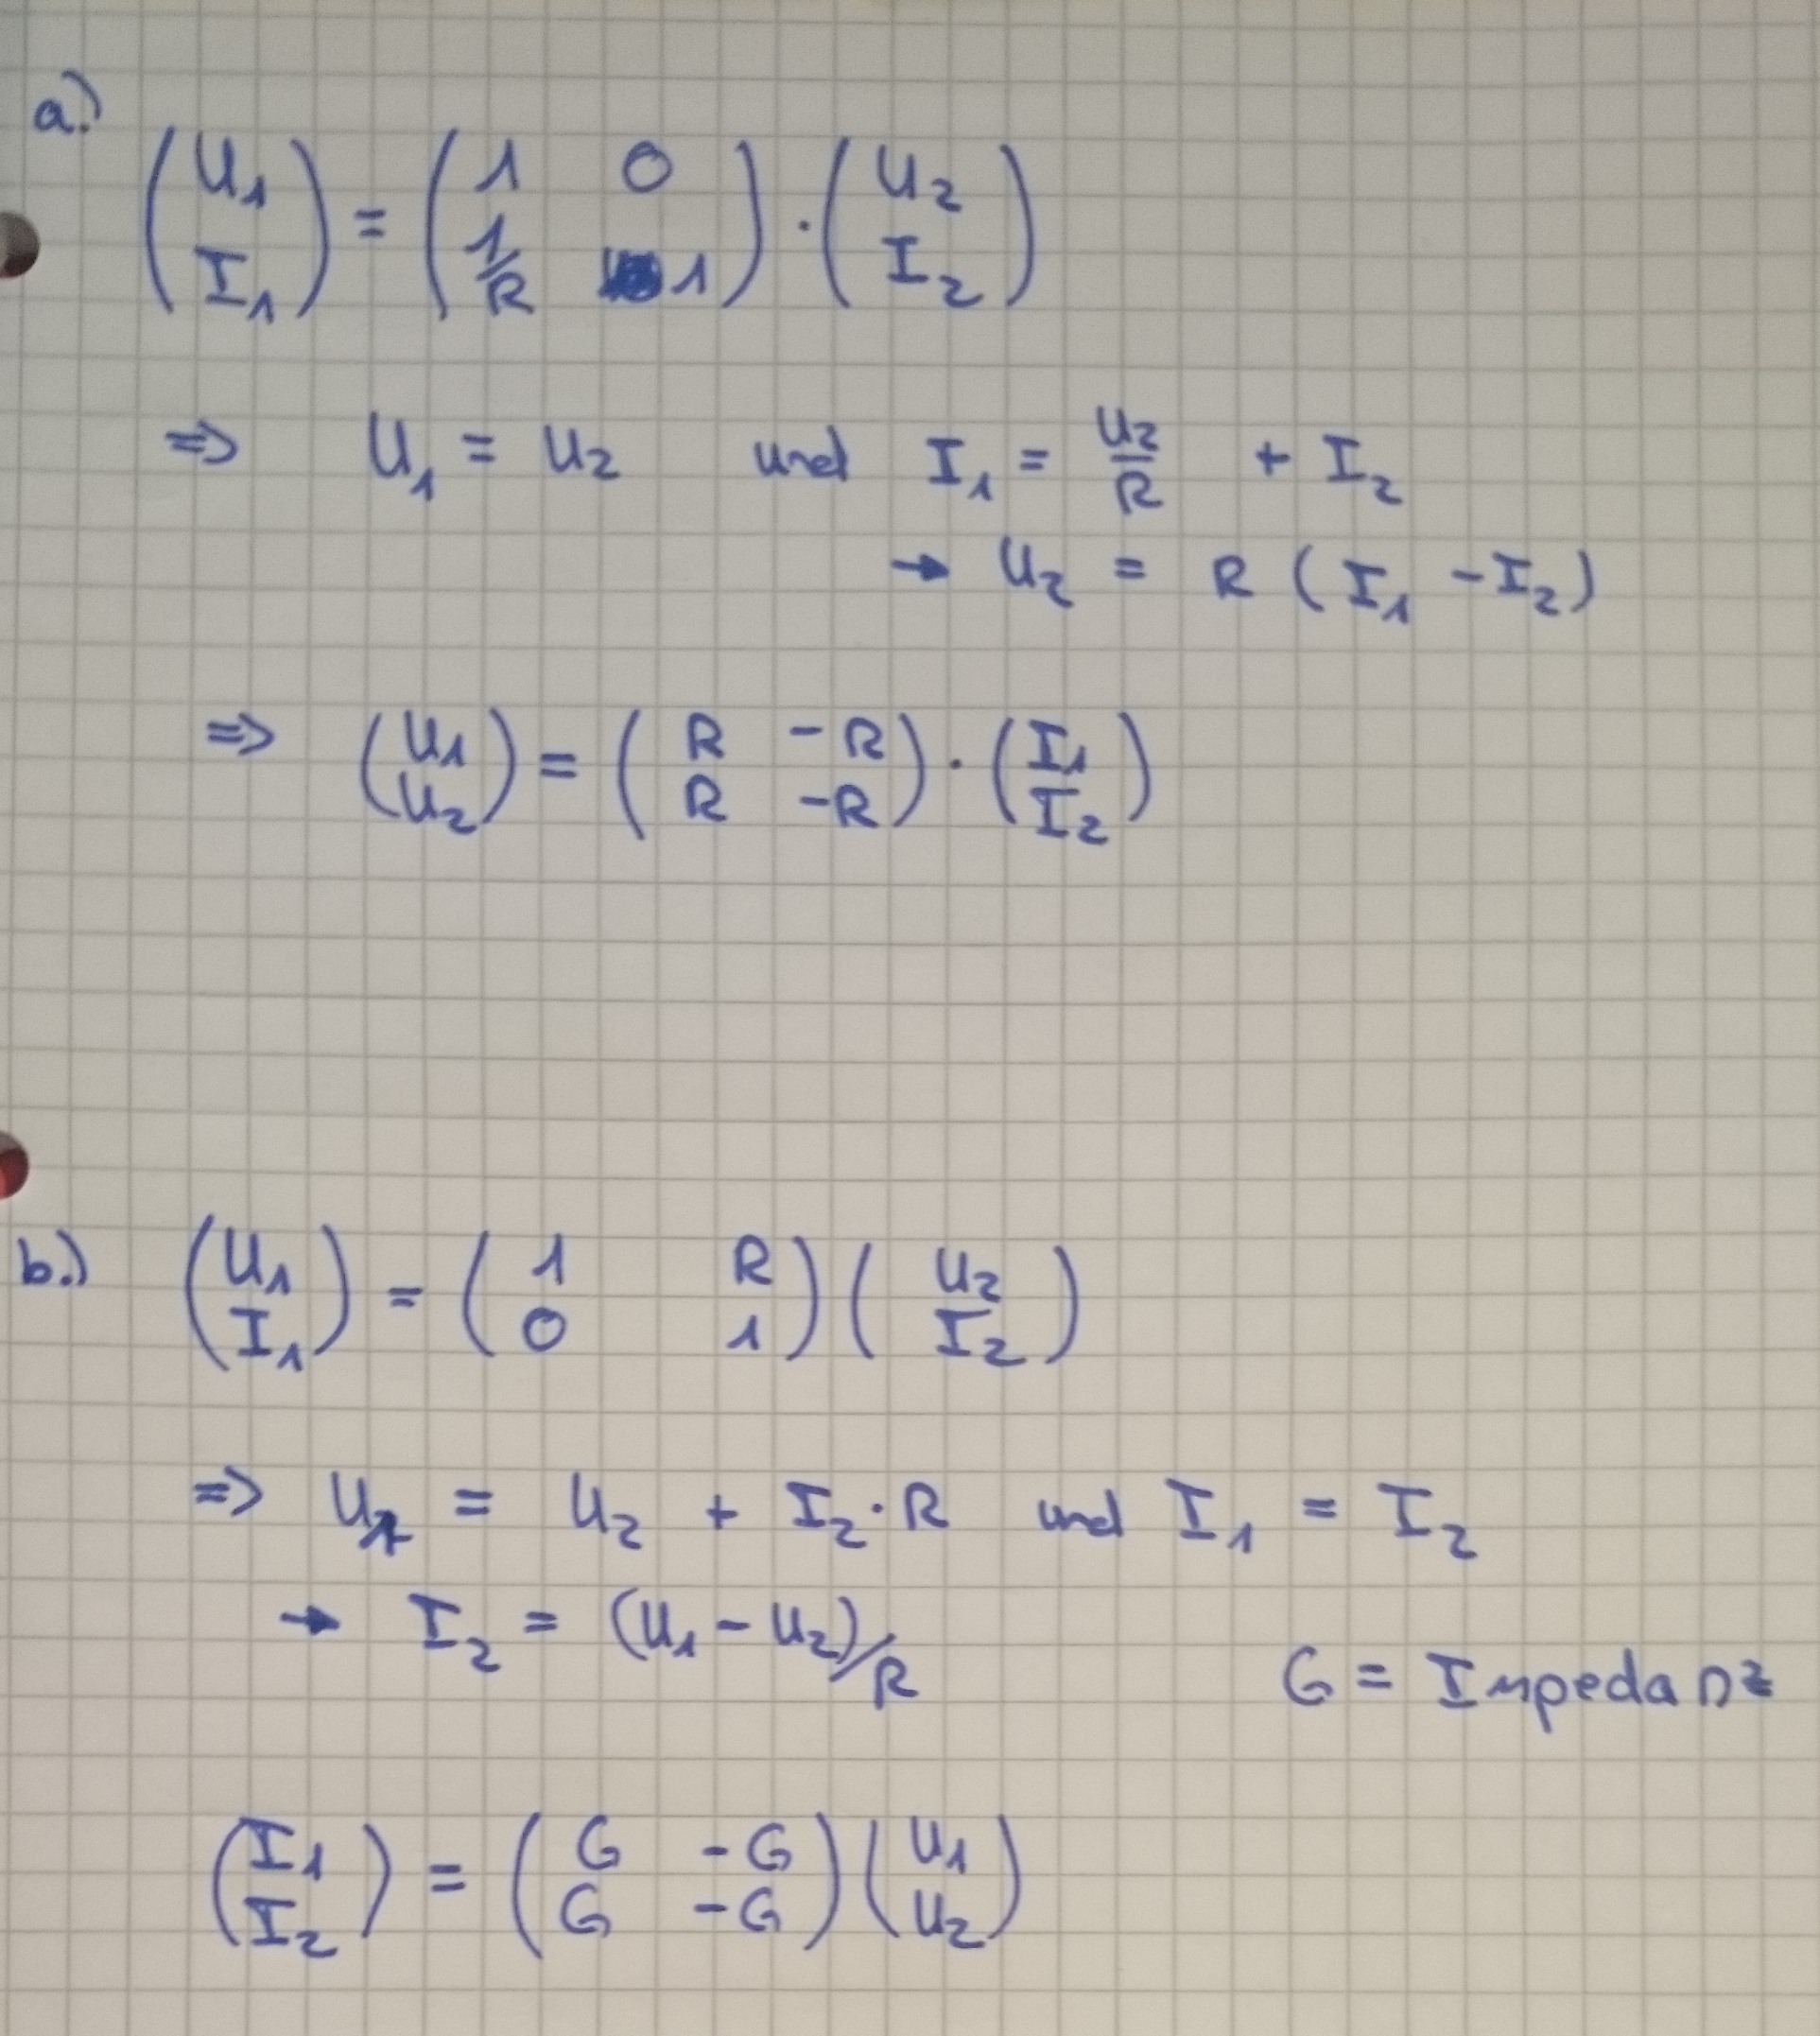 a.)
(U₁ I₁) = (1 0 1/R 1) · (U₂ I₂)
⇒ U₁ = U₂ und I₁ = U₂/R + I₂
→ U₂ = R (I₁ - I₂)
⇒ (U₁ U₂) = (R -R R -R) · (I₁ I₂)
b.) (U₁ I₁) = (1 R 0 1) (U₂ I₂)
⇒ U₁ = U₂ + I₂ · R und I₁ = I₂
→ I₂ = (U₁ - U₂)/R
G = Impedanz
(I₁ I₂) = (G -G G -G) (U₁ U₂)